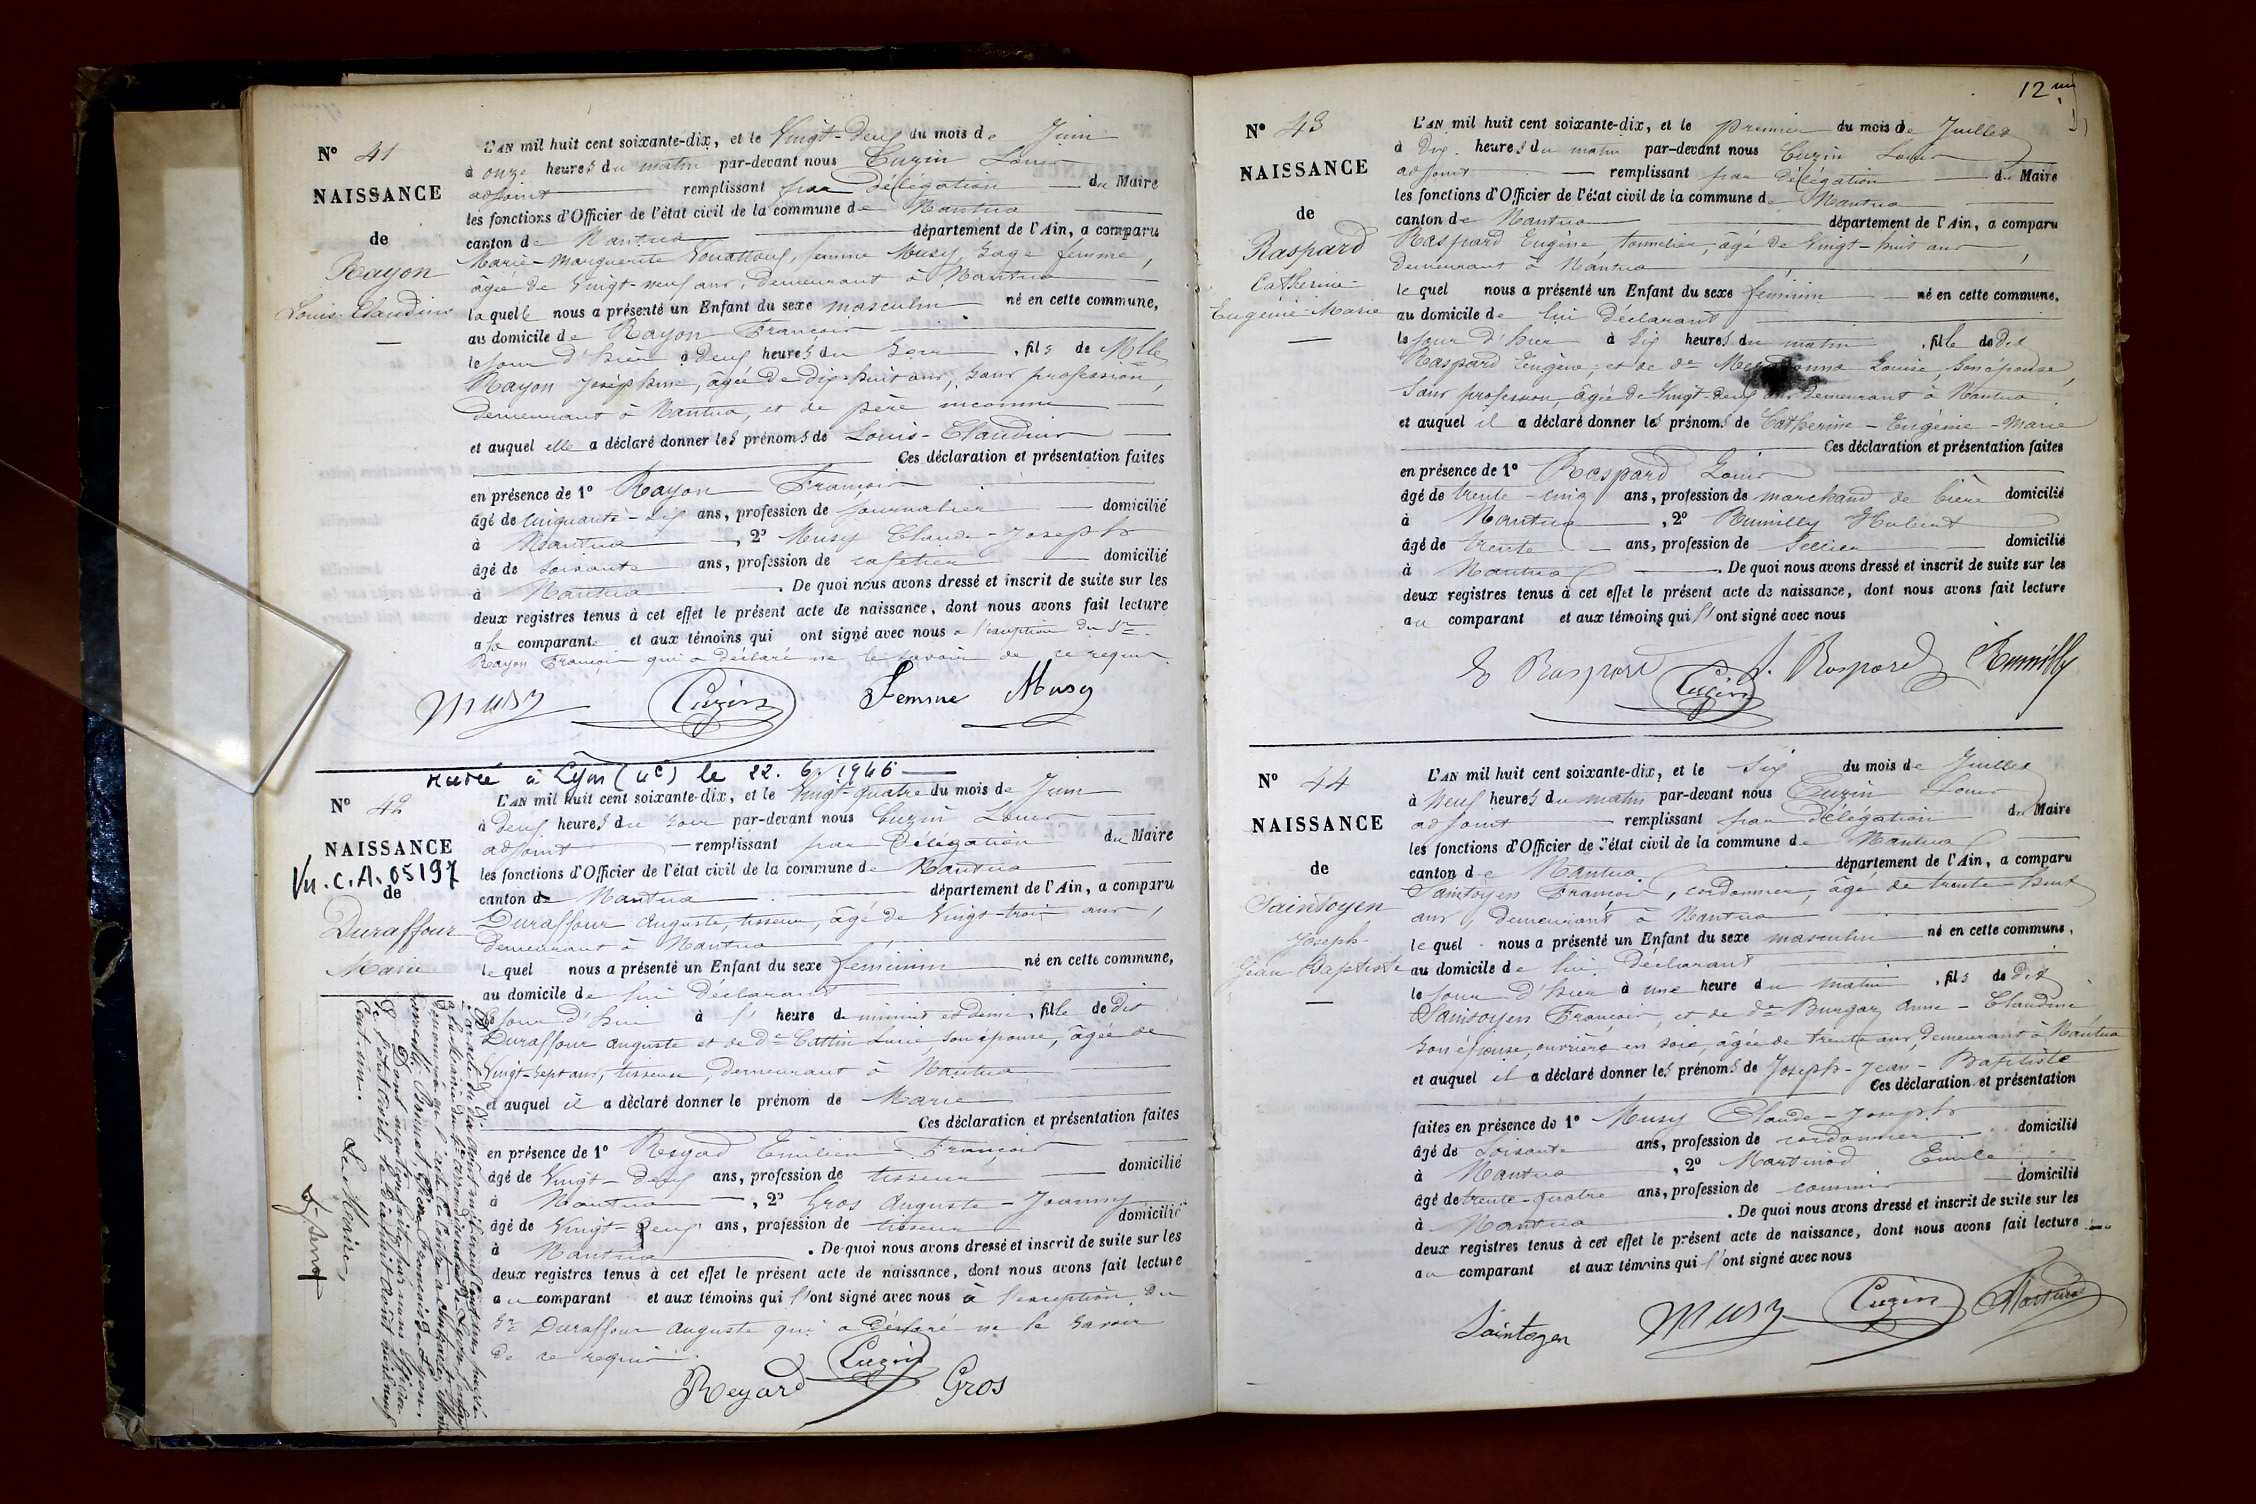 N° 41
NAISSANCE
de
Rayon
Louis-Claudius
L'AN mil huit cent soixante-dix, et le Vingt-deux du mois de Juin
à onze heures du matin par-devant nous Cuzin Louis
adjoint remplissant par délégation du Maire
les fonctions d'Officier de l'état civil de la commune de Nantua
canton de Nantua département de l'Ain, a comparu
Marie-Marguerite femme Musy, Sage femme,
âgée de Vingt-neuf ans, demeurant à Nantua
la quelle nous a présenté un Enfant du sexe masculin né en cette commune,
au domicile de Rayon François
le jour d'hier à deux heures du soir, fils de Mlle
Rayon Joséphine, âgée de dix-huit ans, sans profession,
demeurant à Nantua, et de père inconnu
et auquel elle a déclaré donner les prénoms de Louis-Claudius
Ces déclaration et présentation faites
en présence de 1° Rayon François
âgé de cinquante-six ans, profession de journalier domicilié
à Nantua, 2° Musy Claude-Joseph
âgé de soixante ans, profession de cafetier domicilié
à Nantua. De quoi nous avons dressé et inscrit de suite sur les
deux registres tenus à cet effet le présent acte de naissance, dont nous avons fait lecture
a la comparante et aux témoins qui ont signé avec nous à l'exception du Sr
Rayon François qui a déclaré ne le savoir de ce requis.
Musy Cuzin Femme Musy
Mariée à Lyon (4e) le 22. 6. 1946
N° 42
NAISSANCE
Vu. C.A. 05197
de
Duraffour
Marie
L'AN mil huit cent soixante-dix, et le Vingt-quatre du mois de Juin
à deux heures du soir par-devant nous Cuzin Louis
adjoint remplissant par délégation du Maire
les fonctions d'Officier de l'état civil de la commune de Nantua
canton de Nantua département de l'Ain, a comparu
Duraffour Auguste, tisseur, âgé de Vingt-trois ans,
demeurant à Nantua
le quel nous a présenté un Enfant du sexe féminin né en cette commune,
au domicile de lui déclarant
le jour d'hier à l' heure de minuit et demi, fille de dit
Duraffour Auguste et de De Cattin Lucie, son épouse, âgée de
Vingt-sept ans, tisseuse, demeurant à Nantua
et auquel il a déclaré donner le prénom de Marie
Ces déclaration et présentation faites
en présence de 1° Reyard Emilien-François
âgé de Vingt-deux ans, profession de tisseur domicilié
à Nantua, 2° Gros Auguste-Joanny
âgé de Vingt-deux ans, profession de tisseur domicilié
à Nantua. De quoi nous avons dressé et inscrit de suite sur les
deux registres tenus à cet effet le présent acte de naissance, dont nous avons fait lecture
au comparant et aux témoins qui l'ont signé avec nous à l'exception du
Sr Duraffour Auguste qui a déclaré ne le savoir
de ce requis.
Reyard Cuzin Gros
Le Maire,
12
N° 43
NAISSANCE
de
Raspard
Catherine-
Eugénie-Marie
L'AN mil huit cent soixante-dix, et le premier du mois de Juillet
à dix heures du matin par-devant nous Cuzin Louis
adjoint remplissant par délégation du Maire
les fonctions d'Officier de l'état civil de la commune de Nantua
canton de Nantua département de l'Ain, a comparu
Raspard Eugène, tonnelier, âgé de Vingt-huit ans,
demeurant à Nantua
le quel nous a présenté un Enfant du sexe féminin né en cette commune,
au domicile de lui déclarant
le jour d'hier à six heures du matin, fille de dit
Raspard Eugène, et de De Louise, son épouse,
sans profession, âgée de Vingt-deux ans demeurant à Nantua
et auquel il a déclaré donner les prénoms de Catherine-Eugénie-Marie
Ces déclaration et présentation faites
en présence de 1° Raspard Louis
âgé de trente-cinq ans, profession de marchand de bière domicilié
à Nantua, 2° Rumilly Hubert
âgé de trente ans, profession de sellier domicilié
à Nantua. De quoi nous avons dressé et inscrit de suite sur les
deux registres tenus à cet effet le présent acte de naissance, dont nous avons fait lecture
au comparant et aux témoins qui l'ont signé avec nous
E Raspard Cuzin L. Raspard Rumilly
N° 44
NAISSANCE
de
Saintoyen
Joseph-
Jean-Baptiste
L'AN mil huit cent soixante-dix, et le six du mois de Juillet
à neuf heures du matin par-devant nous Cuzin Louis
adjoint remplissant par délégation du Maire
les fonctions d'Officier de l'état civil de la commune de Nantua
canton de Nantua département de l'Ain, a comparu
Saintoyen François, cordonnier, âgé de trente-huit
ans, demeurant à Nantua
le quel nous a présenté un Enfant du sexe masculin né en cette commune,
au domicile de lui déclarant
le jour d'hier à une heure du matin, fils de dit
Saintoyen François, et de De Burgar Anne-Claudine
son épouse, ouvrière en soie, âgée de trente ans, demeurant à Nantua
et auquel il a déclaré donner les prénoms de Joseph-Jean-Baptiste
Ces déclaration et présentation
faites en présence de 1° Musy Claude-Joseph
âgé de soixante ans, profession de cordonnier domicilié
à Nantua, 2° Martinod Emile
âgé de trente-quatre ans, profession de commis domicilié
à Nantua. De quoi nous avons dressé et inscrit de suite sur les
deux registres tenus à cet effet le présent acte de naissance, dont nous avons fait lecture
au comparant et aux témoins qui l'ont signé avec nous
Saintoyen Musy Cuzin Martinod